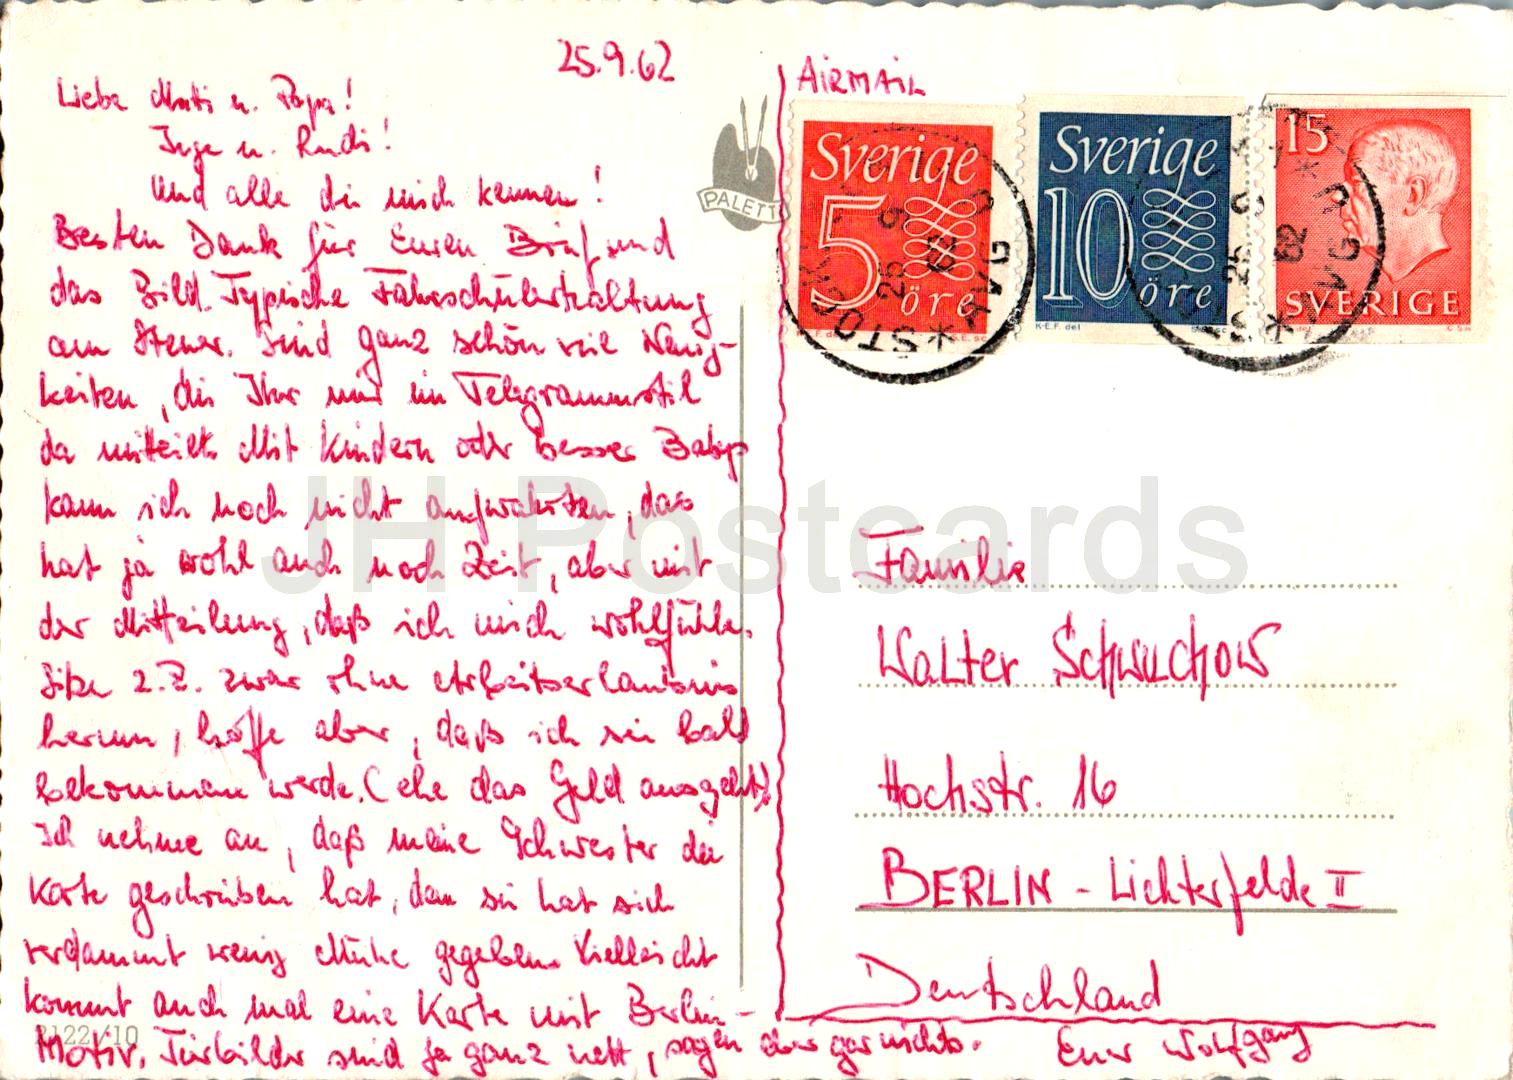 25.9.62
Liebe Mutti u. Papa!
Inge u. Rudi!
Und alle die mich kennen!
Besten Dank für Euren Brief und
das Bild. Typische Fahrschülerhaltung
am Steuer. Sind ganz schön viel Neuig-
keiten, die Ihr mir im Telegrammstil
da mitteilt. Mit Kindern oder besser Babys
kann ich noch nicht aufwarten, das
hat ja wohl auch noch Zeit, aber mit
der Mitteilung, daß ich mich wohlfühle.
Sitze z. Z. zwar ohne Arbeitserlaubnis
herum, hoffe aber, daß ich sie bald
bekommen werde. (ehe das Geld ausgeht)
Ich nehme an, daß meine Schwester die
Karte geschrieben hat, denn sie hat sich
verdammt wenig Mühe gegeben. Vielleicht
kommt auch mal eine Karte mit Berlin-
Motiv. Tierbilder sind ja ganz nett, sagen aber gar nichts.
Euer Wolfgang
2122/10
PALETT
AIRMAIL
Sverige
5
öre
Sverige
10
öre
K-E.F. del
15
SVERIGE
STOCK
25 9
62
AVG
25 9
62
AVG
Familie
Walter Schwuchow
Hochstr. 16
BERLIN - Lichterfelde II
Deutschland
JH Postcards